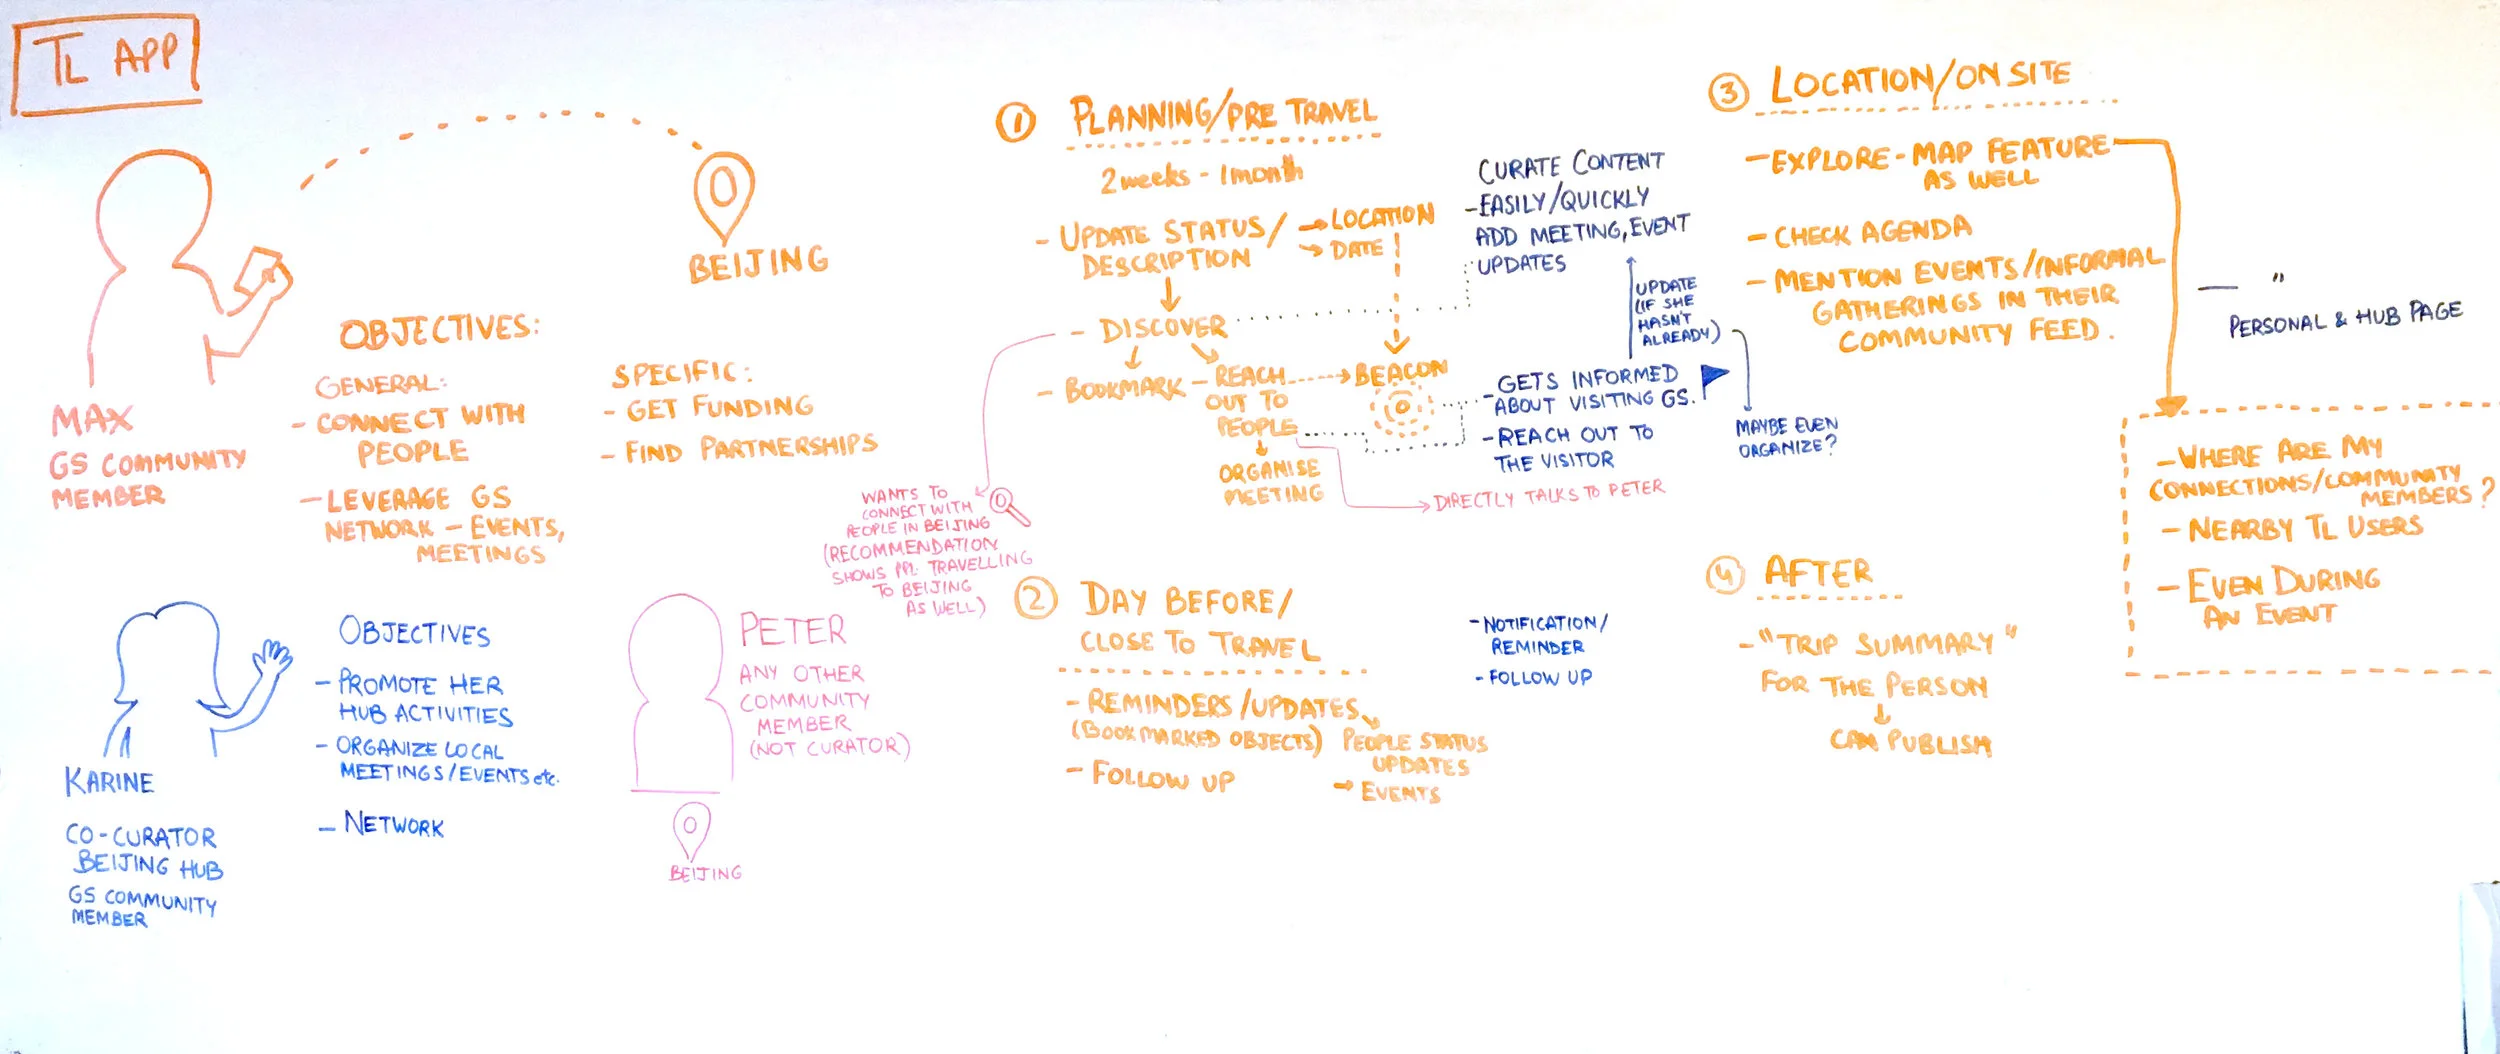 TL APP
BEIJING
MAX
GS COMMUNITY
MEMBER
OBJECTIVES:
GENERAL:
- CONNECT WITH
PEOPLE
- LEVERAGE GS
NETWORK - EVENTS,
MEETINGS
SPECIFIC:
- GET FUNDING
- FIND PARTNERSHIPS
KARINE
CO-CURATOR
BEIJING HUB
GS COMMUNITY
MEMBER
OBJECTIVES
- PROMOTE HER
HUB ACTIVITIES
- ORGANIZE LOCAL
MEETINGS/EVENTS etc.
- NETWORK
PETER
ANY OTHER
COMMUNITY
MEMBER
(NOT CURATOR)
BEIJING
1 PLANNING/PRE TRAVEL
2 weeks - 1 month
- UPDATE STATUS/
DESCRIPTION
→ LOCATION
→ DATE
- DISCOVER
- BOOKMARK
- REACH
OUT TO
PEOPLE
ORGANISE
MEETING
BEACON
WANTS TO
CONNECT WITH
PEOPLE IN BEIJING
(RECOMMENDATION
SHOWS PPL. TRAVELLING
TO BEIJING
AS WELL)
CURATE CONTENT
- EASILY/QUICKLY
ADD MEETING, EVENT
UPDATES
UPDATE
(IF SHE
HASN'T
ALREADY)
- GETS INFORMED
ABOUT VISITING GS.
- REACH OUT TO
THE VISITOR
MAYBE EVEN
ORGANIZE?
DIRECTLY TALKS TO PETER
2 DAY BEFORE/
CLOSE TO TRAVEL
- REMINDERS/UPDATES
(BOOKMARKED OBJECTS)
- FOLLOW UP
PEOPLE STATUS
UPDATES
→ EVENTS
- NOTIFICATION/
REMINDER
- FOLLOW UP
3 LOCATION/ON SITE
- EXPLORE - MAP FEATURE
AS WELL
- CHECK AGENDA
- MENTION EVENTS/INFORMAL
GATHERINGS IN THEIR
COMMUNITY FEED.
— "
PERSONAL & HUB PAGE
- WHERE ARE MY
CONNECTIONS/COMMUNITY
MEMBERS?
- NEARBY TL USERS
- EVEN DURING
AN EVENT
4 AFTER
- "TRIP SUMMARY"
FOR THE PERSON
CAN PUBLISH